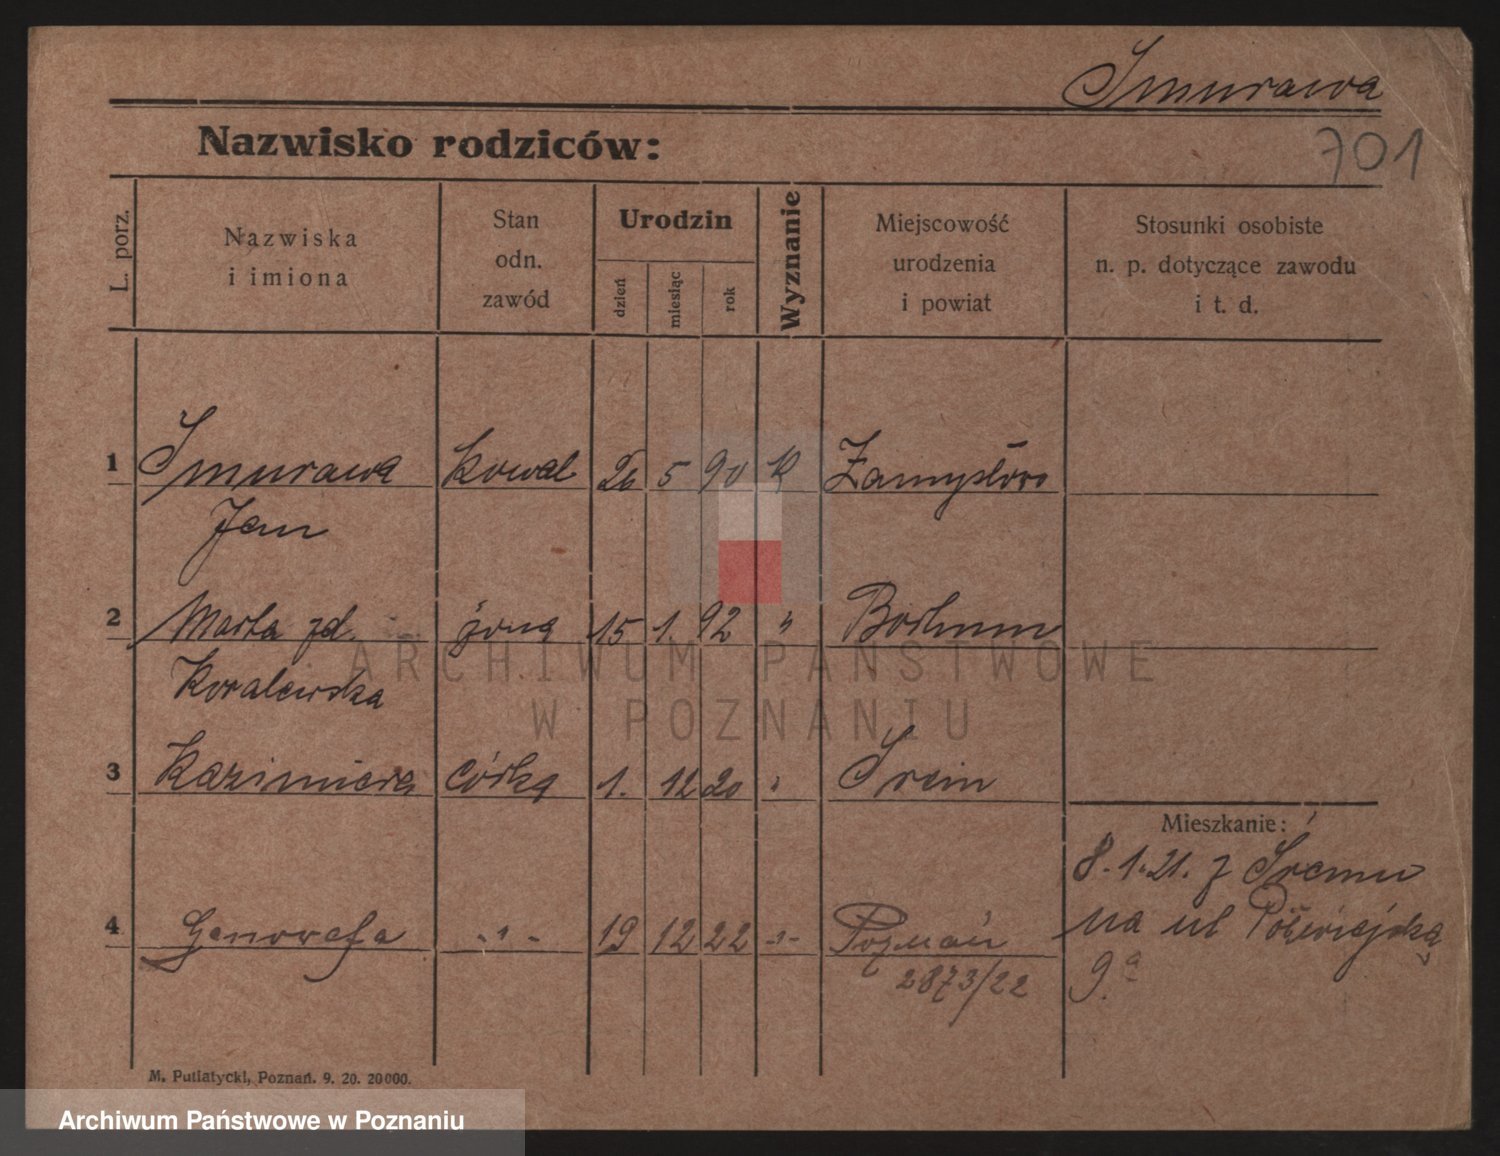 Smurawa
701
Nazwisko rodziców:
L. porz.
Nazwiska
i imiona
Stan
odn.
zawód
Urodzin
dzień
miesiąc
rok
Wyznanie
Miejscowość
urodzenia
i powiat
Stosunki osobiste
n. p. dotyczące zawodu
i t. d.
1 Smurawa kowal 26 5 90 K Zamysłowo
Jan
2 Marta zd. żona 15 1. 92 " Bochum
Kowalewska
3 Kazimiera córka 1. 12 20 " Srem
Mieszkanie:
8.1.21. z Śremu
4 Genowefa -"- 19 12 22 -"- Poznań
na ul Półwiejską
2873/22
9a
M. Putiatycki, Poznań. 9. 20. 20000.
ARCHIWUM PAŃSTWOWE
W POZNANIU
Archiwum Państwowe w Poznaniu